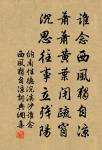 誰念西風獨自涼
蕭蕭黃葉閉疏窗
沉思往事立殘陽
納蘭性德浣溪沙誰念
西風獨自涼詞典網集